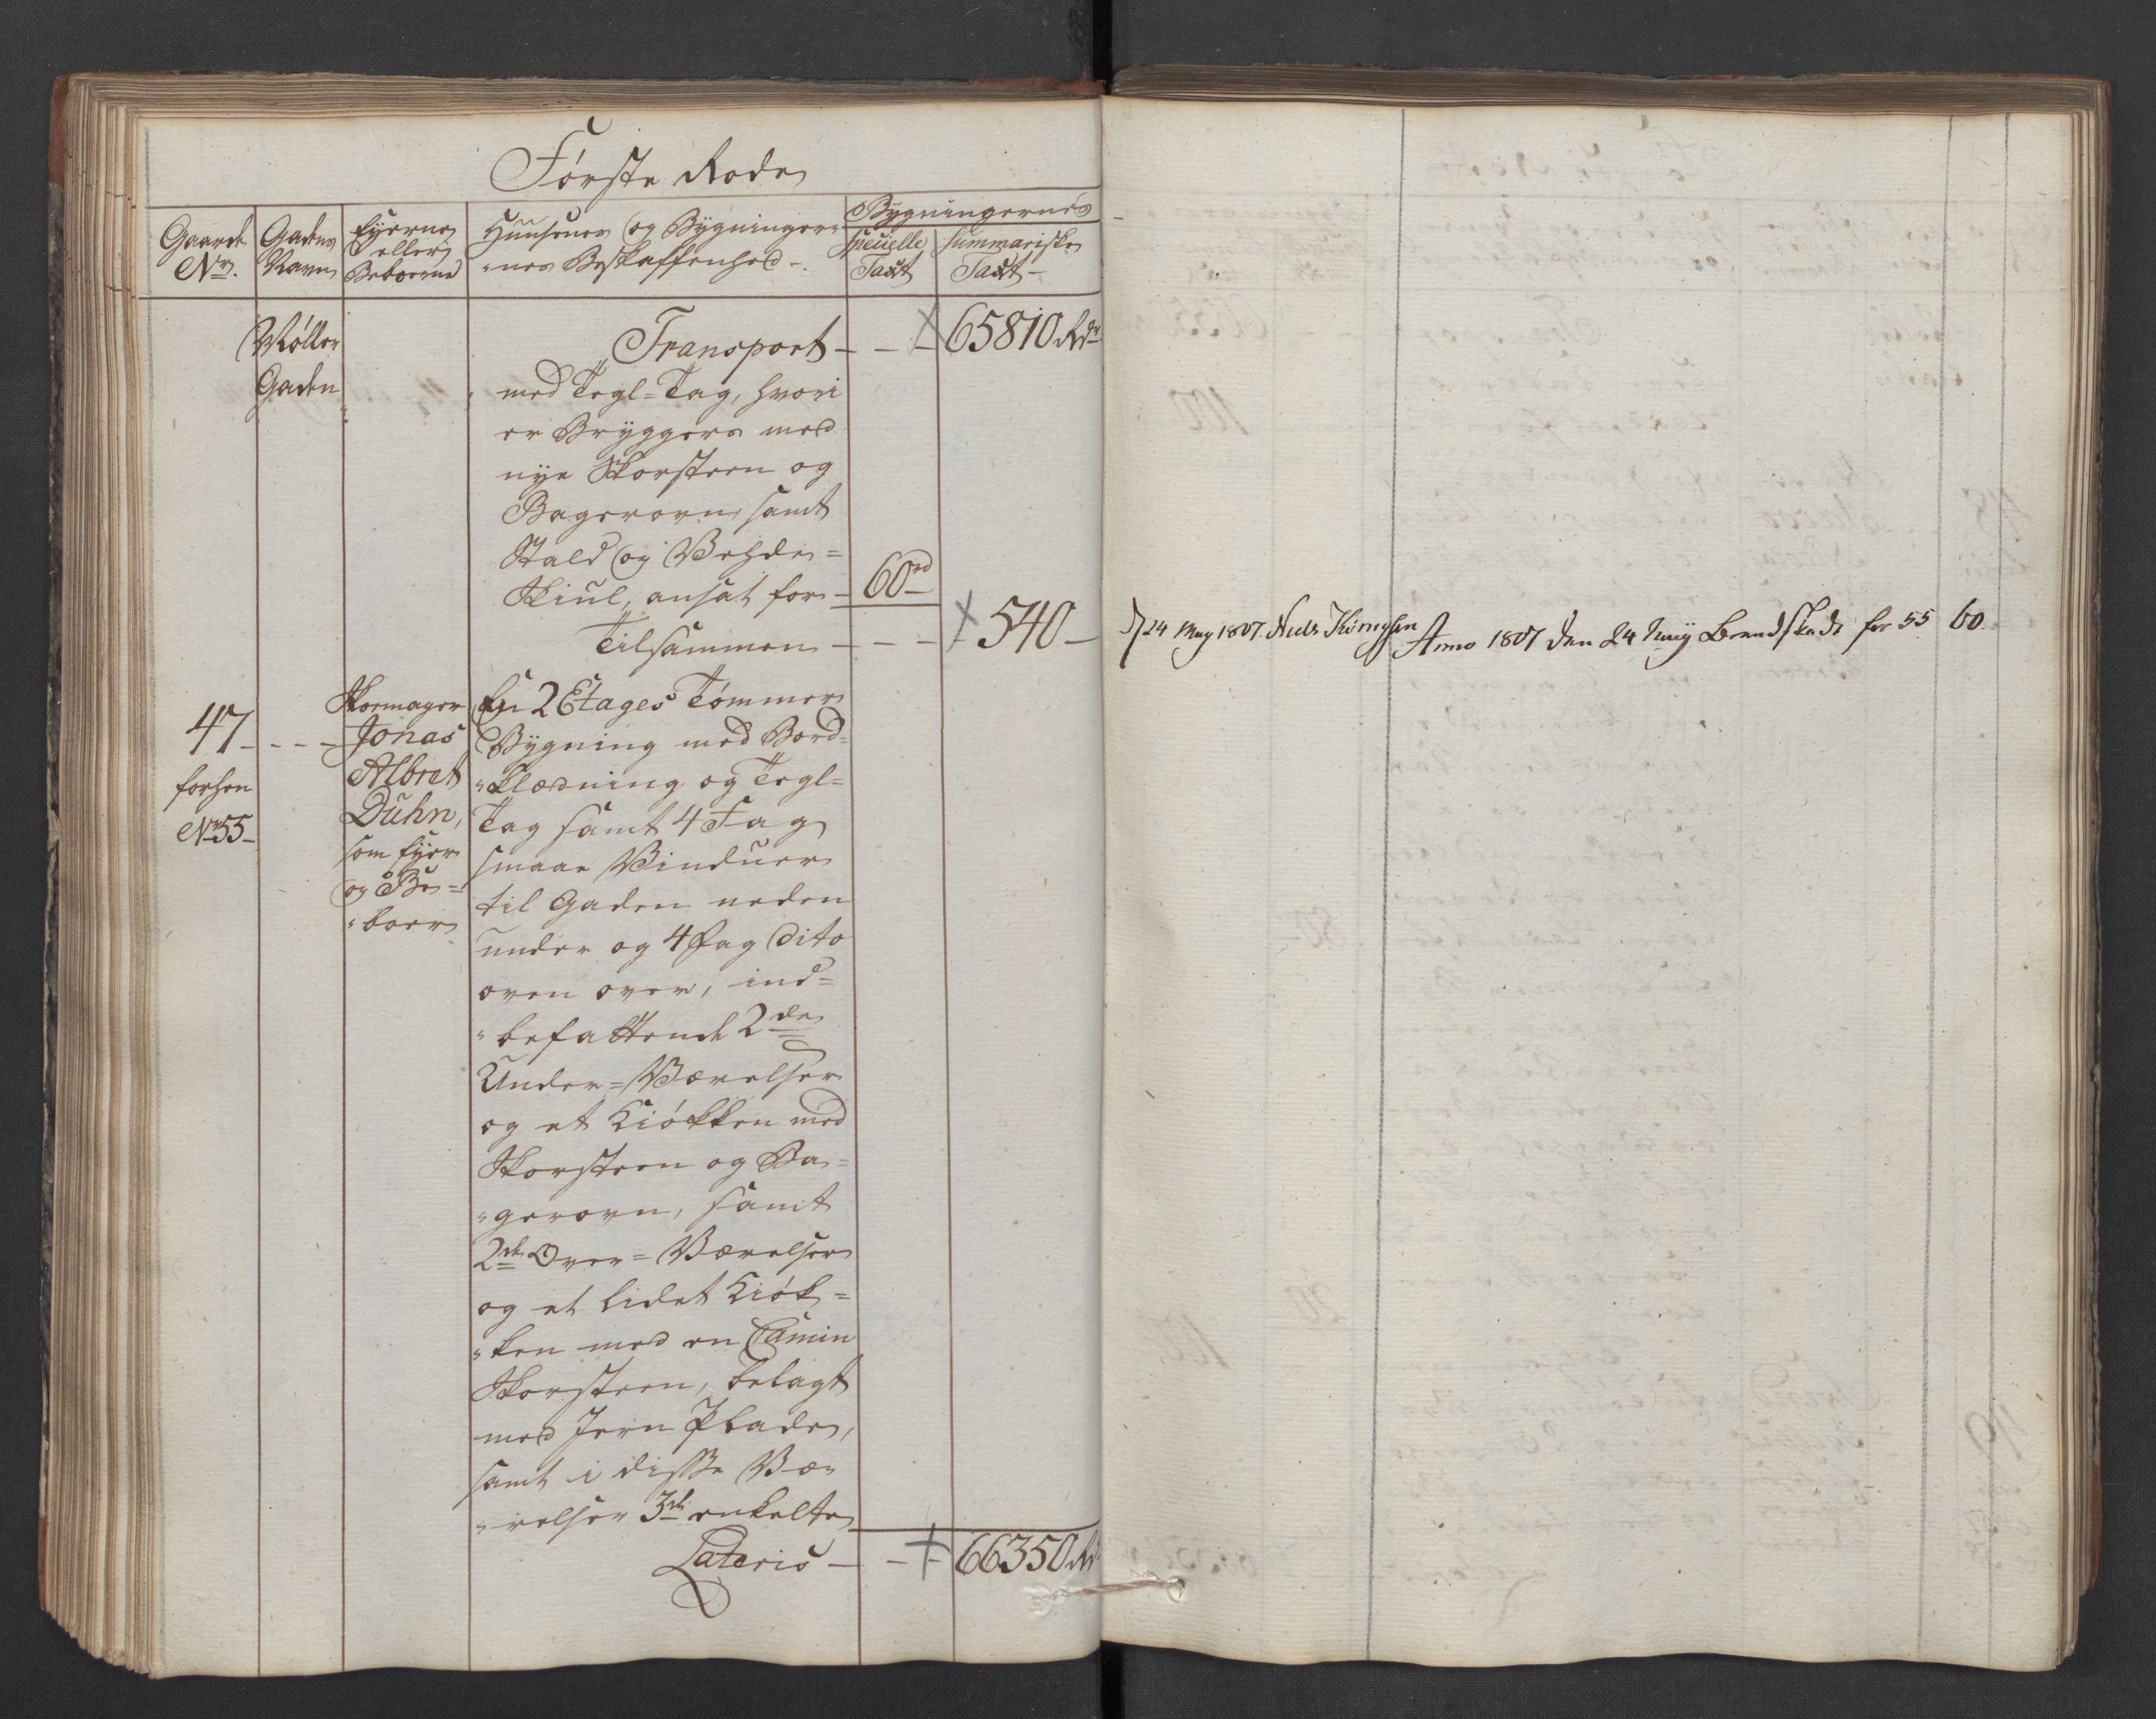 Første Rode
Gaarde No.
Gadens Navn
Eyerne eller Beboerne
Huusenes og Bygninger-
"nes Beskaffenhed -
Bygningernes
specielle Taxt
summariske Taxt -
Møller
Gaden
Transport - - - 65810 Rdr
med Tegl=Tag, hvori
er Bryggers med
nye Skorsteen og
Bagerovn, samt
Stald og Vehde=
Skiul, ansat for - 60rd -
Tilsammen - - - 540 -
47 - - - -
forhen
No 55 -
Skoemager
Jonas
Albret
Duhn,
som Eyer
og Be=
"boer
En 2 Etages Tømmer
Bygning med Bord-
"klædning og Tegl=
Tag samt 4 Fag
smaae Vinduer
til Gaden neden
under og 4 Fag dito
oven over, ind=
"befattende 2de
Under=Værelser
og et Kiøkken med
Skorsteen og Ba=
"gerovn, samt
2de Over=Værelser
og et lidet Kiøk=
"ken med en Camin
Skorsteen, belagt
med Jern Plade,
samt i disse Væ-
"relser 3de enkelte
Lateris - - 66350 Rd
24 May 1807. Niels
Anno 1807 den 24 Maij Brandskade for 55 60.